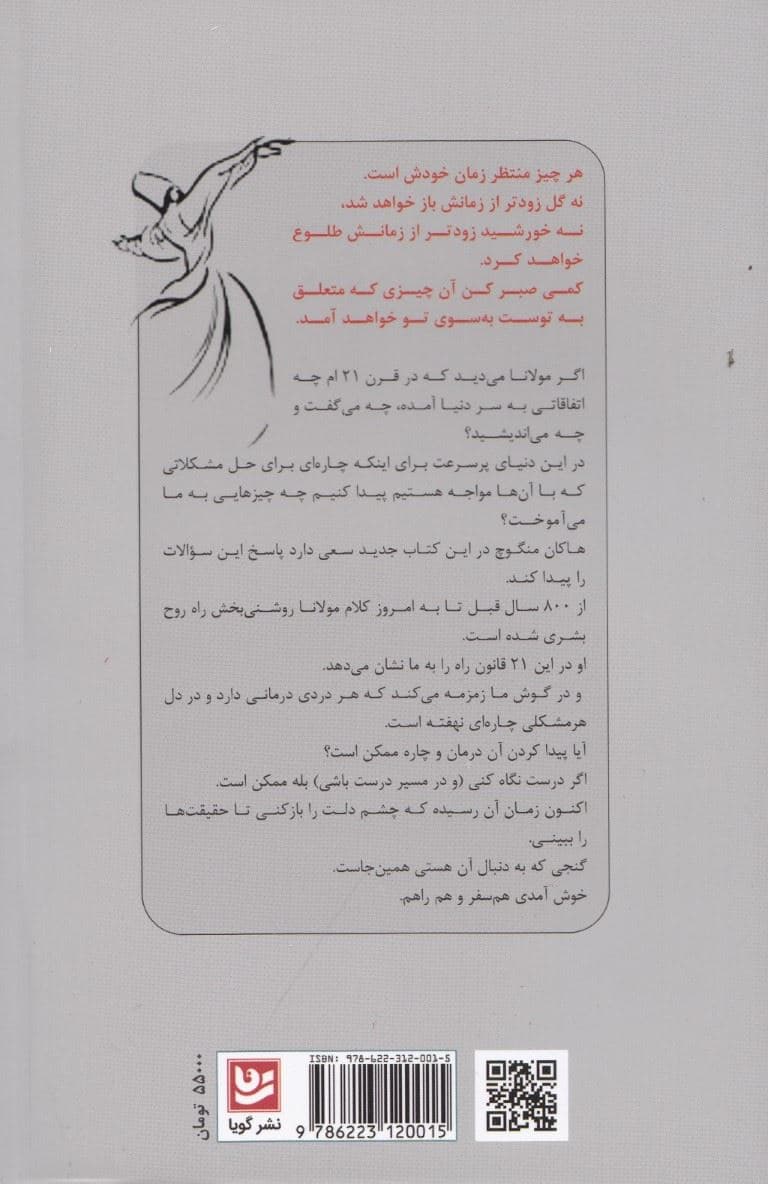 هر چیز منتظر زمان خودش است.
نه گل زودتر از زمانش باز خواهد شد،
نه خورشید زودتر از زمانش طلوع
خواهد کرد.
کمی صبر کن آن چیزی که متعلق
به توست به‌سوی تو خواهد آمد.
اگر مولانا می‌دید که در قرن ۲۱ ام چه
اتفاقاتی به سر دنیا آمده، چه می‌گفت و
چه می‌اندیشید؟
در این دنیای پرسرعت برای اینکه چاره‌ای برای حل مشکلاتی
که با آن‌ها مواجه هستیم پیدا کنیم چه چیزهایی به ما
می‌آموخت؟
هاکان منگوچ در این کتاب جدید سعی دارد پاسخ این سؤالات
را پیدا کند.
از ۸۰۰ سال قبل تا به امروز کلام مولانا روشنی‌بخش راه روح
بشری شده است.
او در این ۲۱ قانون راه را به ما نشان می‌دهد.
و در گوش ما زمزمه می‌کند که هر دردی درمانی دارد و در دل
هرمشکلی چاره‌ای نهفته است.
آیا پیدا کردن آن درمان و چاره ممکن است؟
اگر درست نگاه کنی (و در مسیر درست باشی) بله ممکن است.
اکنون زمان آن رسیده که چشم دلت را بازکنی تا حقیقت‌ها
را ببینی.
گنجی که به دنبال آن هستی همین‌جاست.
خوش آمدی هم‌سفر و هم راهم.
ISBN: 978-622-312-001-5
9 786223 120015
نشر گویا
۵۵۰۰۰ تومان